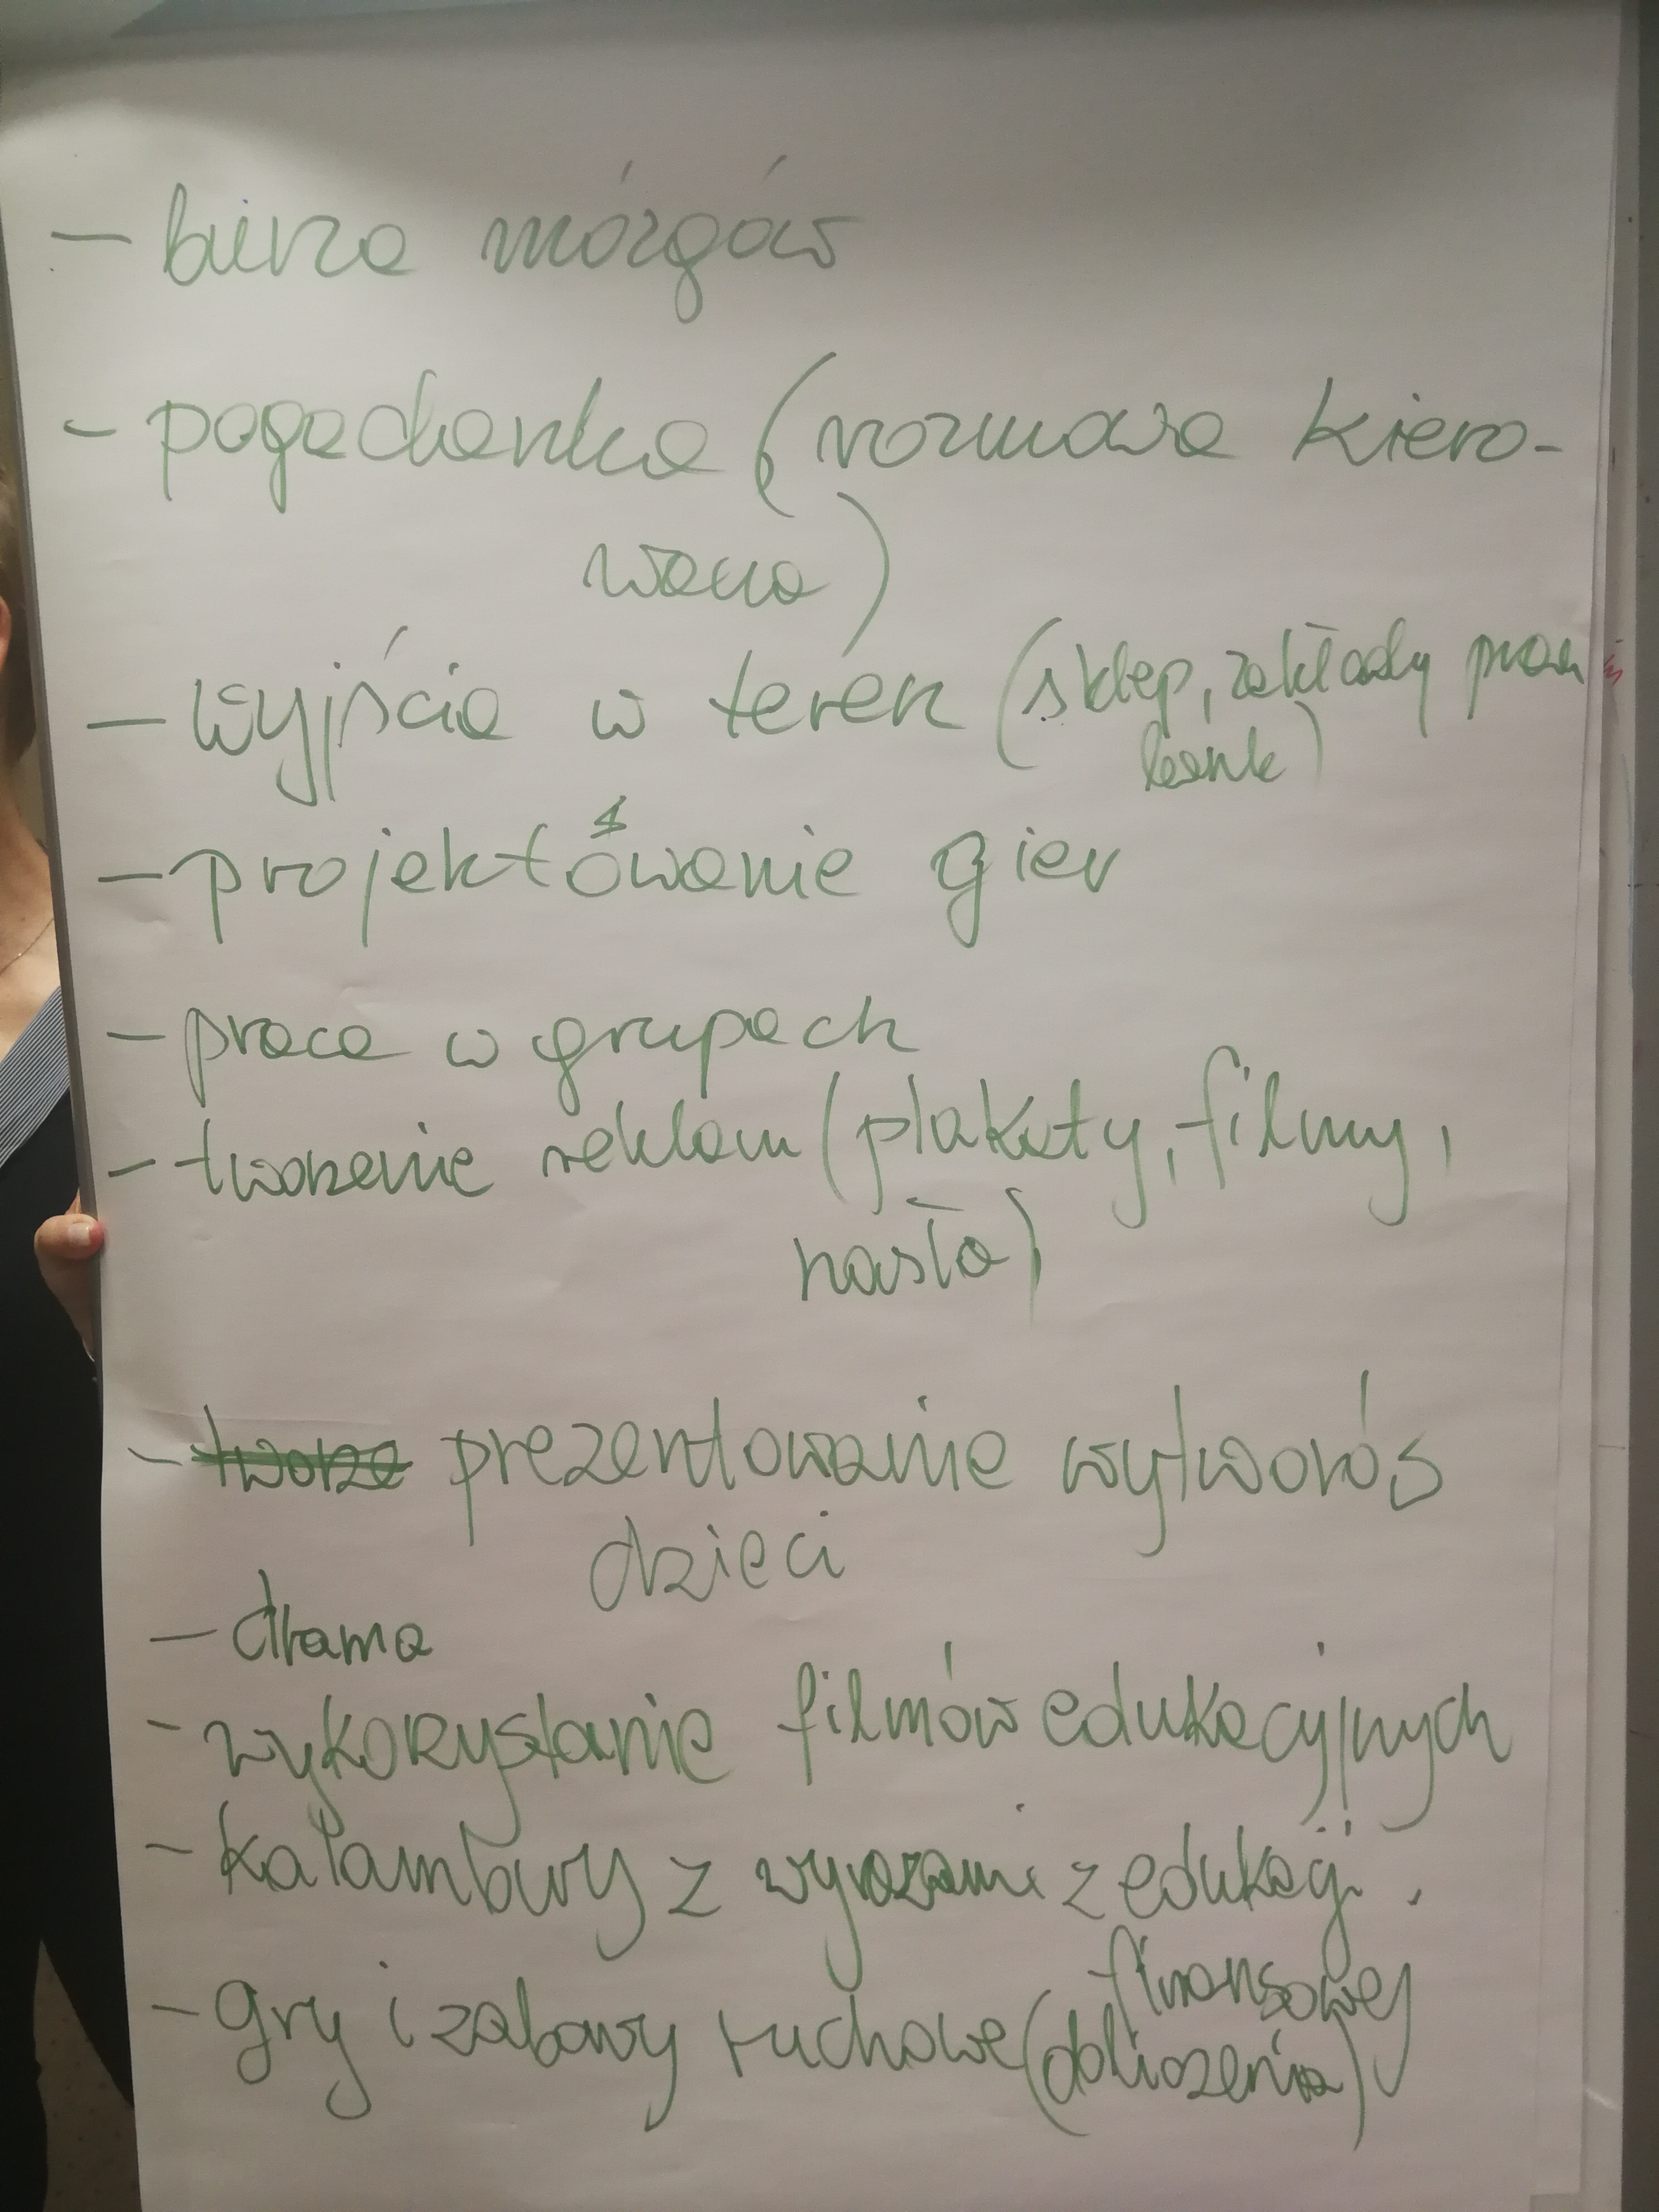 - burza mózgów
- pogadanka (rozmowa kiero-
wana)
- wyjście w teren (sklep, zakłady pracy
bank)
- projektowanie gier
- praca w grupach
- tworzenie reklam (plakaty, filmy,
hasło)
- tworze prezentowanie wytworów
dzieci
- drama
- wykorzystanie filmów edukacyjnych
- kalambury z wyrazami z edukacji
finansowej
- gry i zabawy ruchowe (doliczenia)